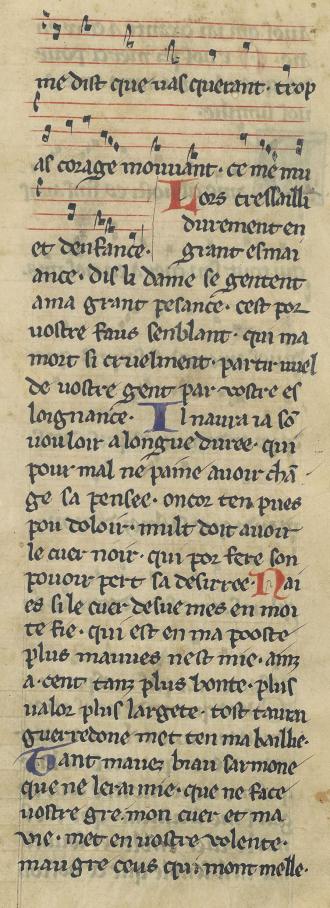 me dist que vas querant. trop
as corage mouvant. ce me mu
Lors tressailli
durement en
et denfance. grant esmai
ance. dis li dame se gentent
a ma grant pesance. cest por
vostre faus senblant. qui ma
mort si cruelment. partir vuel
de vostre gent par vostre es
loignance. Il naura ia sõ
vouloir a longue duree. qui
pour mal ne paine avoir chã
ge sa pensee. oncor ten pues
pou doloir. mult doit avoir
le cuer noir. qui por fere son
pouoir pert sa desirree. Nai
es si le cuer desve mes en moi
te fie. qui est en ma pooste
plus mauves nest mie. ainz
a. cent tanz plus bonte. plus
valor plus largete. tost taura
guerredone met ten ma baillie.
Tant mavez biau sarmone
que ne lerai mie. que ne face
vostre gre. mon cuer et ma
vie. met en vostre volente.
maugre ceus qui mont melle.